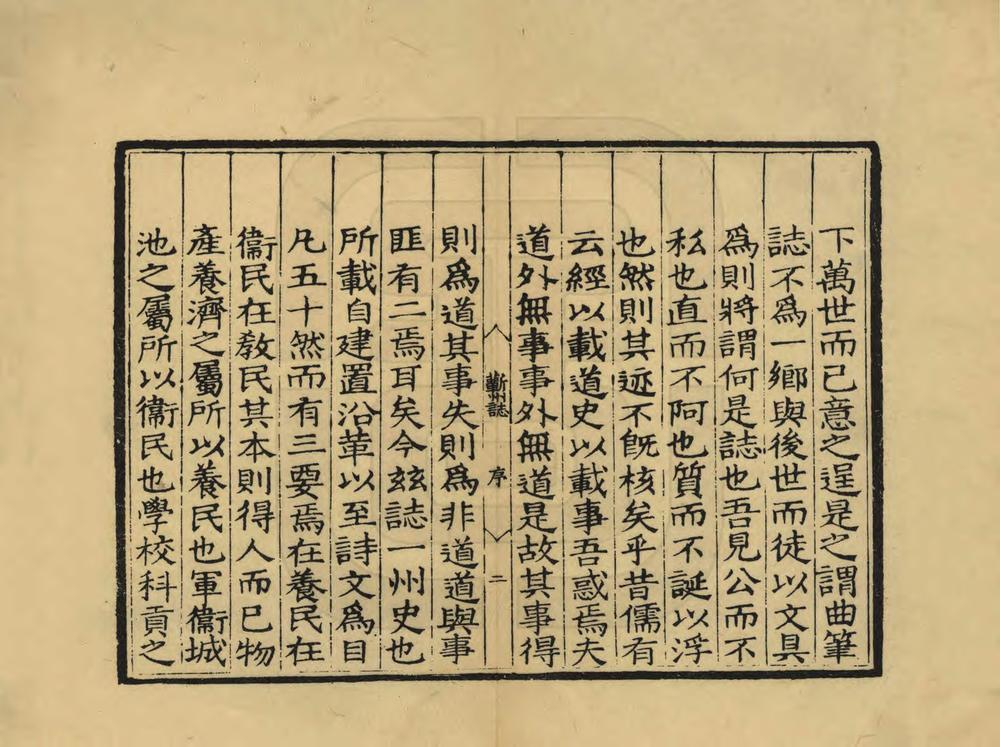 下萬世而已意之逞是之謂曲筆
誌不爲一鄉與後世而徒以文具
爲則將謂何是誌也吾見公而不
私也直而不阿也質而不誕以浮
也然則其迹不旣核矣乎昔儒有
云經以載道史以載事吾惑焉夫
道外無事事外無道是故其事得
蘄州誌
序
二
則爲道其事失則爲非道道與事
匪有二焉耳矣今玆誌一州史也
所載自建置沿革以至詩文爲目
凡五十然而有三要焉在養民在
衞民在敎民其本則得人而已物
產養濟之屬所以養民也軍衞城
池之屬所以衞民也學校科貢之